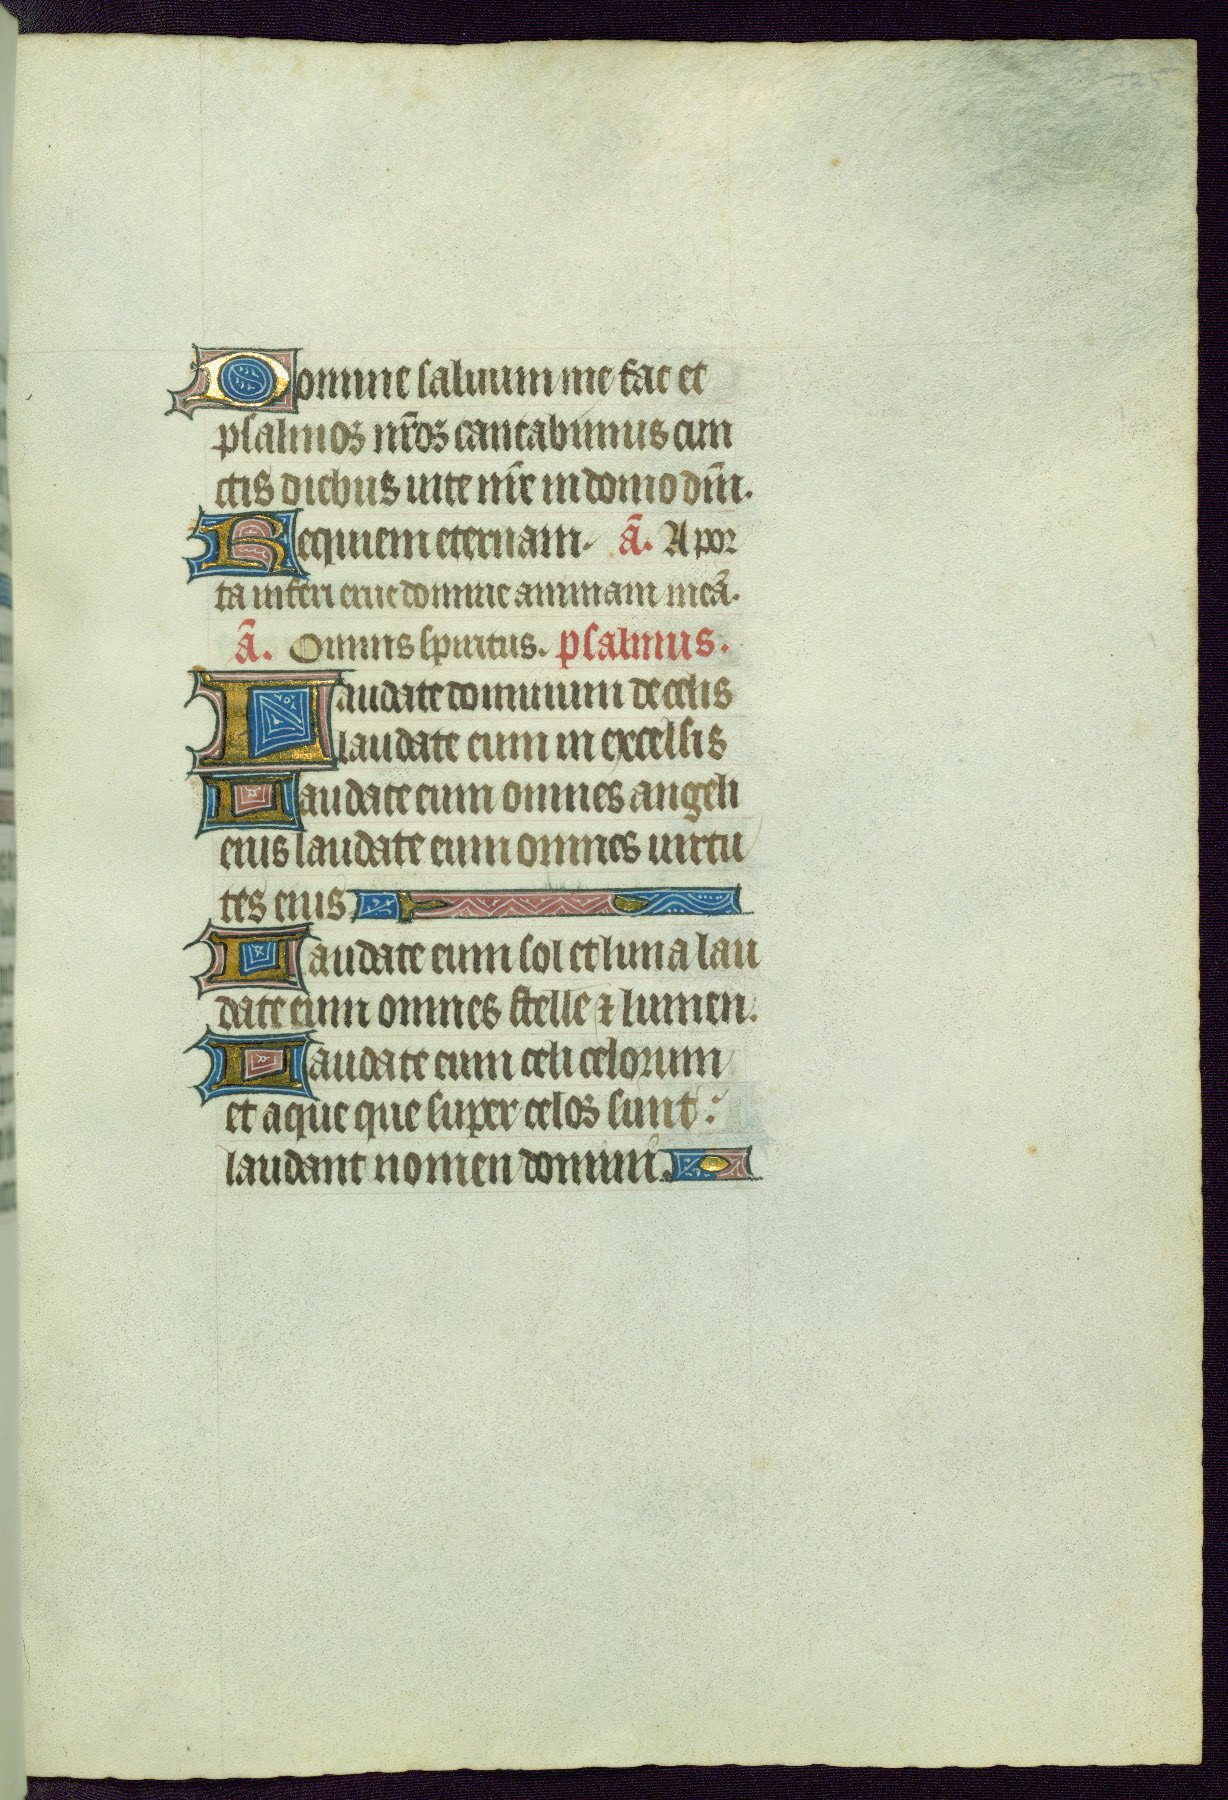 Domine saluum me fac et
psalmos nr̄os cantabimus cun
ctis diebus uite nr̄e in domo dn̄i.
Requiem eternam. ā. A por
ta inferi erue domine animam meā.
ā. Omnis spiritus. psalmus.
Laudate dominum de celis
laudate eum in excelsis
Laudate eum omnes angeli
eius laudate eum omnes uirtu
tes eius
Laudate eum sol et luna lau
date eum omnes stelle ⁊ lumen.
Laudate eum celi celorum
et aque que super celos sunt:
laudant nomen domini.